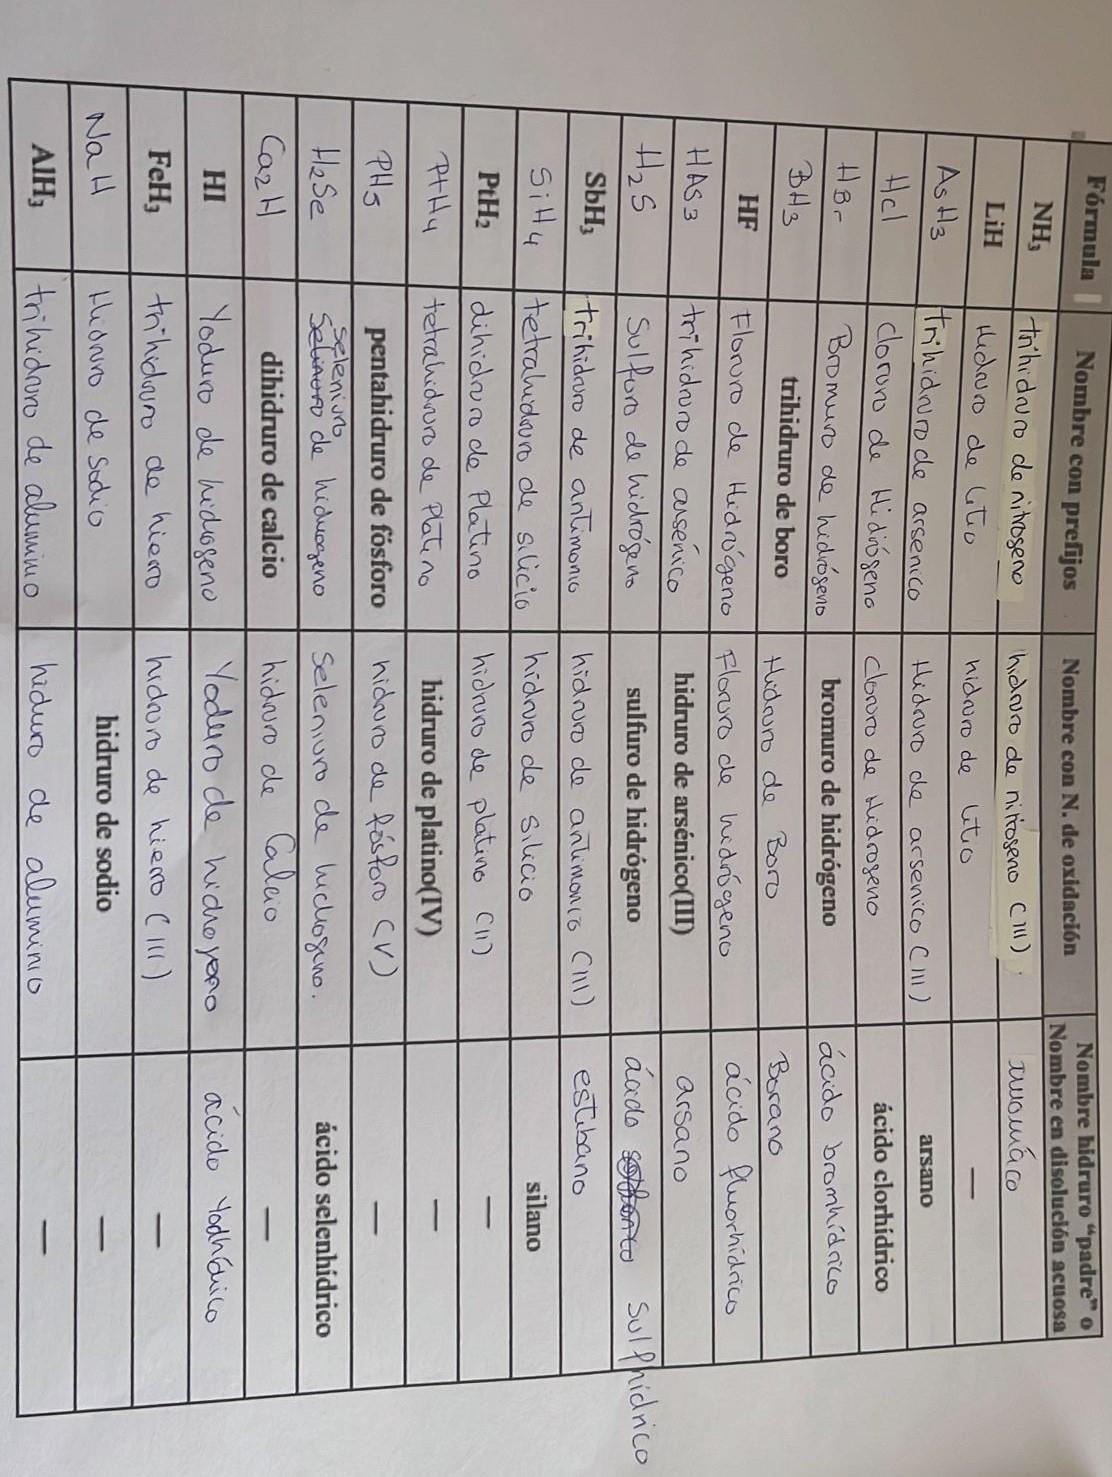 Fórmula | Nombre con prefijos | Nombre con N. de oxidación | Nombre hidruro "padre" o Nombre en disolución acuosa
NH₃ | trihidruro de nitrogeno | hidruro de nitrogeno (III) | amoniáco
LiH | Hidruro de litio | hidruro de litio | —
AsH3 | trihidruro de arsenico | Hidruro de arsenico (III) | arsano
Hcl | cloruro de Hidrógeno | cloruro de Hidrogeno | ácido clorhídrico
HBr | Bromuro de hidrógeno | bromuro de hidrógeno | ácido bromhídrico
BH3 | trihidruro de boro | Hidruro de Boro | Borano
HF | Floruro de Hidrógeno | Floruro de hidrógeno | ácido fluorhidrico
HAS3 | trihidruro de arsénico | hidruro de arsénico(III) | arsano
H2S | Sulfuro de hidrógeno | sulfuro de hidrógeno | ácido Sulfhidrico
SbH₃ | trihidruro de antimonio | hidruro de antimonio (III) | estibano
SiH4 | tetrahidruro de silicio | hidruro de silicio | silano
PtH₂ | dihidruro de Platino | hidruro de platino (II) | —
PtH4 | tetrahidruro de Platino | hidruro de platino(IV) | —
PH5 | pentahidruro de fósforo | hidruro de fósforo (V) | —
H2Se | Seleniuro de hidrogeno | seleniuro de hidrogeno. | ácido selenhídrico
Ca2H | dihidruro de calcio | hidruro de Calcio | —
HI | Yoduro de hidrogeno | Yoduro de hidrogeno | ácido Yodhídrico
FeH₃ | trihidruro de hierro | hidruro de hierro (III) | —
NaH | Hidruro de Sodio | hidruro de sodio | —
AlH₃ | trihidruro de aluminio | hiduro de aluminio | —